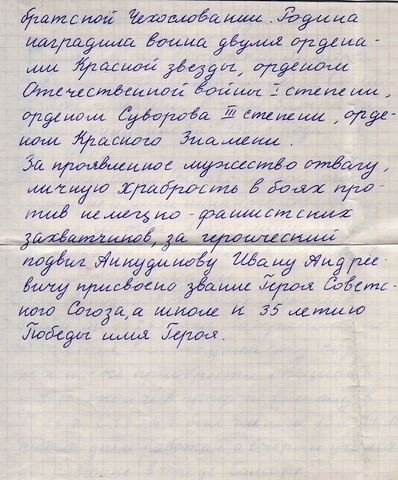 братской Чехословакии. Родина
наградила воина двумя ордена-
ми Красной звезды, орденом
Отечественной войны I степени,
орденом Суворова III степени, орде-
ном Красного Знамени.
За проявленное мужество отвагу,
личную храбрость в боях про-
тив немецко-фашистских
захватчиков, за героический
подвиг Анкудинову Ивану Андрее-
вичу присвоено звание Героя Советс-
кого Союза, а школе к 35 летию
Победы имя Героя.